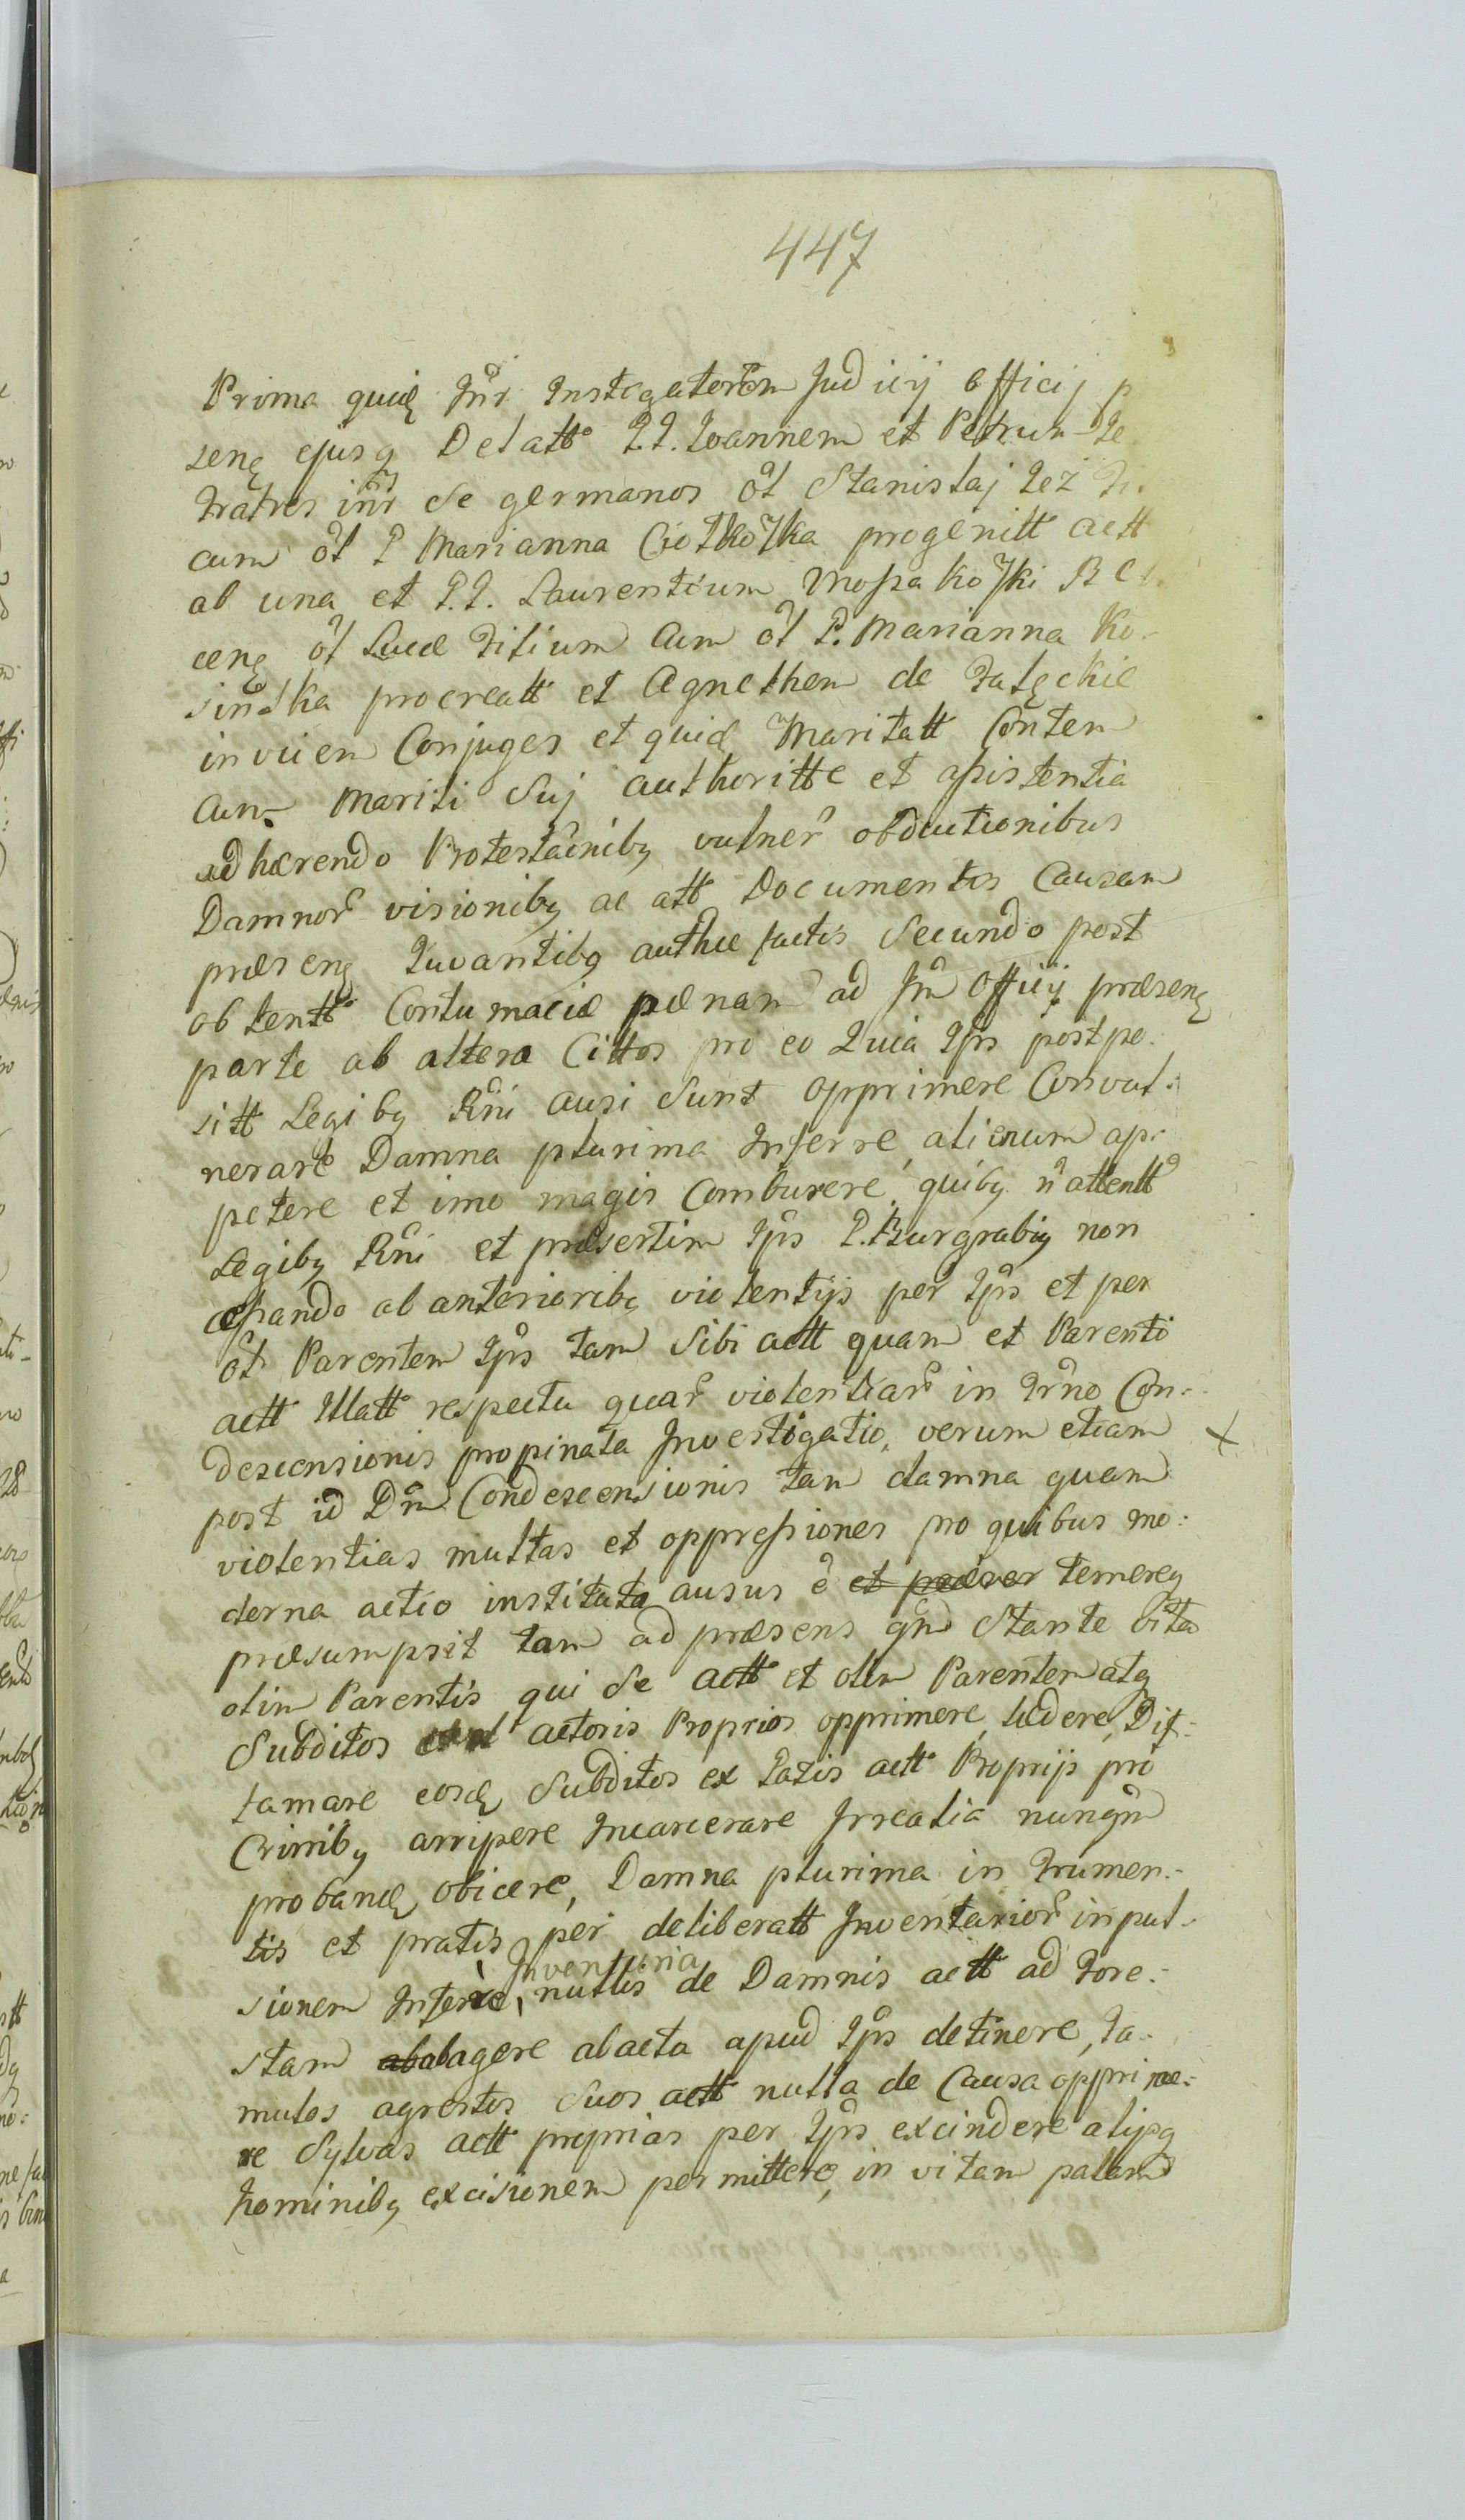 447
Prima quidę Inr Instigatorem Judicij Officij p
senę ejusq Delatt P.P. Joannem et Petrum Je
Fratres inr se germanos ol Stanislaj Jeż Fi
cum ol P Marianna Ciołkoska progenitt actt
ab una et P.P. Laurentium Mossakoski B C
cenę ol Lucæ Filium cum ol P. Marianna Ko-
sinska procreatt et Agnethem de Fałęckie
invicem Conjuges et quid Maritatt Conten
cum Mariti Suj authoritte et assistentia
adhærendo Protestaonibq vulner obductionibus
Damnor visionibq ac att Documentis Causam
præsenę Iuvantibq authce factis Secundo post
obtentt Contumaciæ pænam ad Jm Officij præsenę
parte ab altera Cittos pro eo Quia Ips postpo-
sitt Legibq Rni ausi Sunt opprimere Convul-
nerare Damna plurima Inferre, alienum ap-
petere et imo magis Comburere, quibq n attentt
Legibq Rni et præsertim Ips P. Burgrabiq non
cessando ab anterioribq violentijs per Ips et per
ol Parentem Ips tam Sibi actt quam et Parenti
actt Illatt respectu quar violentiar in Frno Con-
descensionis propinata Investigatio, verum etiam
post id Dm Condescensionis tam damna quam
violentias multas et oppressiones pro quibus mo:
derna actio instituta ausus e et præser temereq
præsumpsit tam ad præsens qm Stante vita
olim Parentis qui Se actt et olim Parentem atq
Subditos actoris Proprios opprimere, lædere, Dif-
famare eosdę Subditos ex Pazis actt Proprijs pro
Crimibq arripere Incarcerare Irrealia nunqm
probandę obicere, Damna plurima in Frumen-
tis et pratis per deliberatt Inventarior inpul-
Inventaria
sionem Inferre, nullis de Damnis actt ad Fore-
stam ababagere abacta apud Ips detinere, Fa-
mulos agrestes Suos actt nulla de Causa opprime-
re Sylvas actt proprias per Ips excindere alijsq
hominibq excisionem permittere, in vitam palam